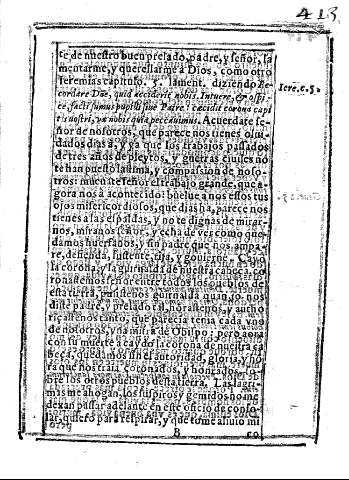 413
te de nuestro buen prelado, padre, y señor, la
mentarme, y querellarme a Dios, como otro
Ieremias capitulo. 5. lament. diziendo Re-
Iere.c.5.
cordare Dñe, quid acciderit nobis, intuere, & respi
ce, facti sumus pupilli sine Patre: cecidit corona capi
tis nostri, væ nobis quia peccauimus. Acuerdate se-
ñor de nosotros, que parece nos tienes olui-
dados dias à, y ya que los trabajos passados
de tres años de pleytos, y guerras ciuiles no
te han puesto lastima, y compassion de noso-
tros: mueuate señor el trabajo grande, que a-
gora nos a acontecido: buelue a nos essos tus
ojos misericordiosos, que dias ha, parece nos
tienes a las espaldas, y no te dignas de mirar-
nos, miranos señor, y echa de ver como que-
damos huerfanos, y sin padre que nos ampa-
re, defienda, sustente, rija, y gouierne. Cayò
la corona, y la guirnalda de nuestra cabeça, co-
ronastemos señor entre todos los pueblos de
esta tierra, pusistenos guirnalda quando nos
diste padre, y prelado tal, honrastenos, y autho
rizastenos tanto, que parecia tenia cada vno
de nosotros, vna mitra de Obispo: pero aora
con su muerte a caydo la corona de nuestra ca
beça, quedamos sin el autoridad, gloria, y hõ
ra que nos traia coronados, y honrados, so-
bre los otros pueblos desta tierra. Las lagri-
mas me ahogan, los suspiros y gemidos no me
dexan passar adelante en este oficio de conso-
lar, quiero para respirar, y que tome aliuio mi
B